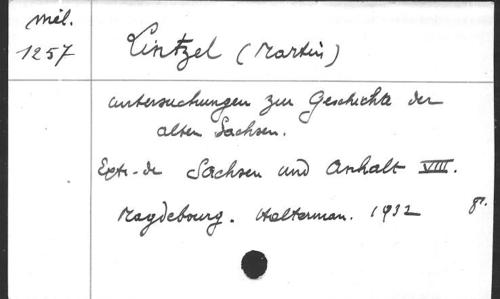 Mél.
1257
Lintzel (Martin)
Untersuchungen zur Geschichte der
alten Sachsen.
Extr. de Sachsen und Anhalt VIII.
Magdebourg. Holterman. 1932 gr.